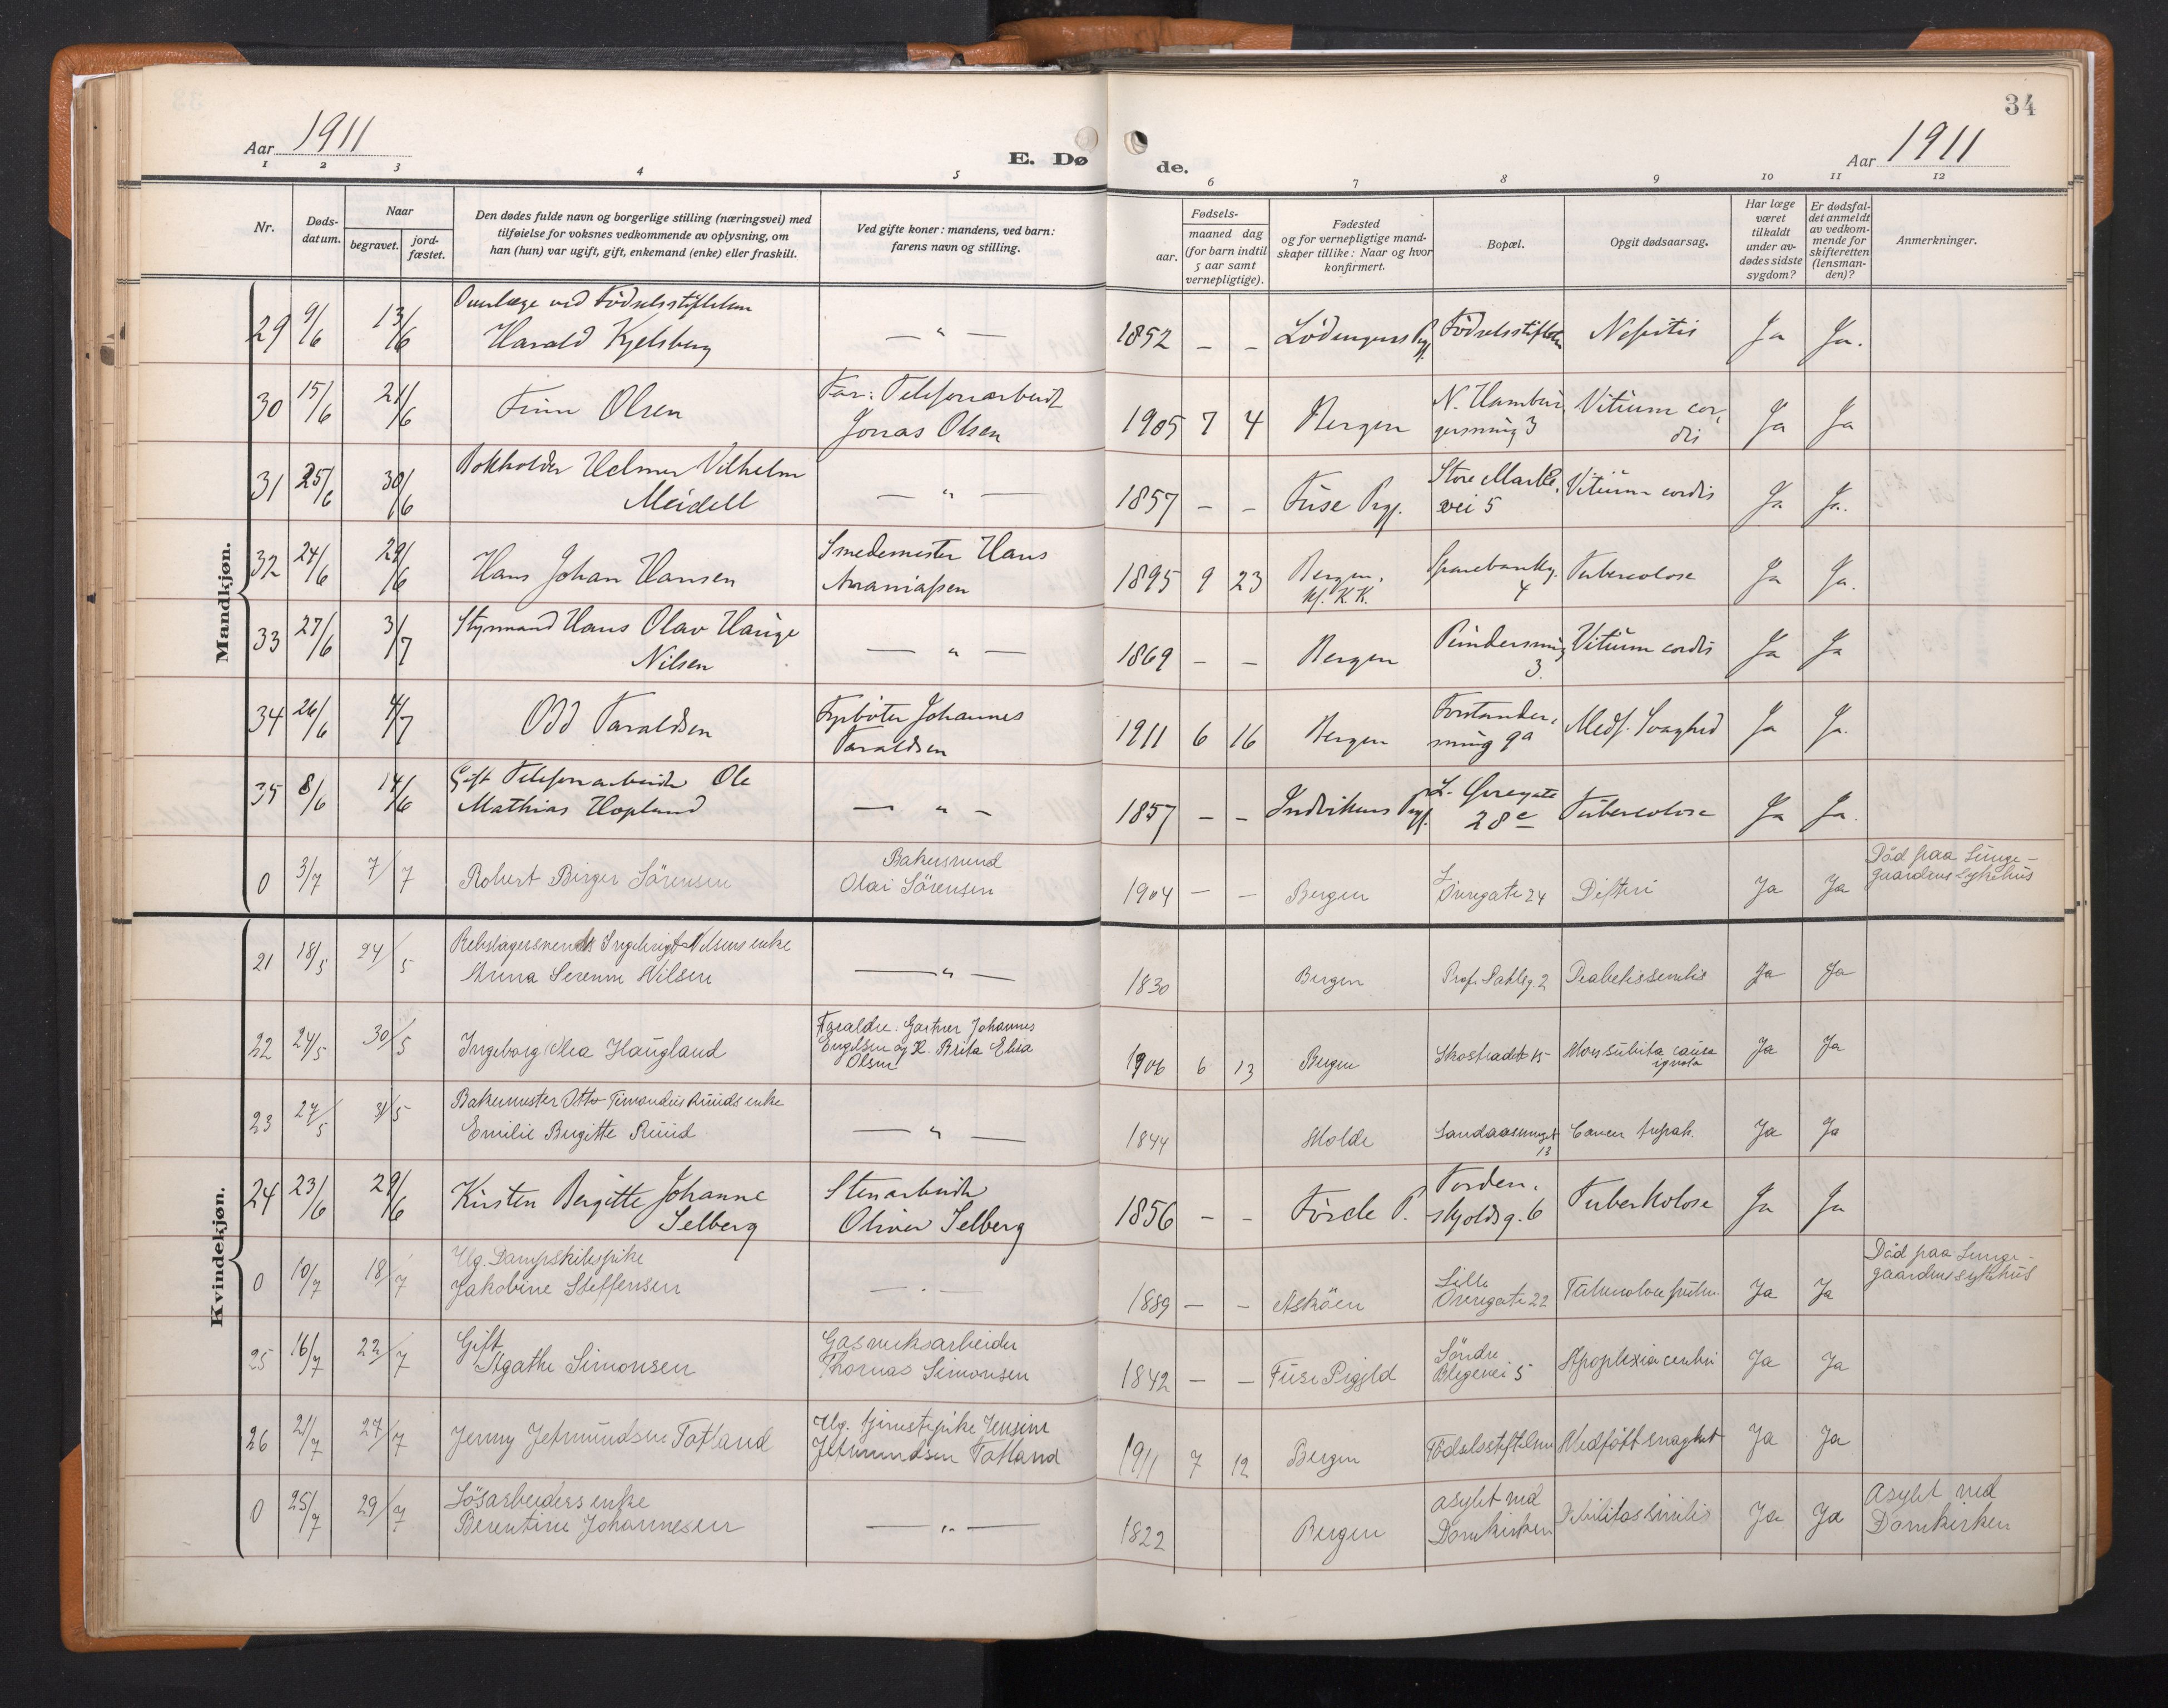 34
Aar 1911
E. Dø
de.
Aar 1911
1 2 3 4 5 6 7 8 9 10 11 12
Nr.
Døds-
datum.
Naar
begravet.
jord-
fæstet.
Den dødes fulde navn og borgerlige stilling (næringsvei) med
tilføielse for voksnes vedkommende av oplysning, om
han (hun) var ugift, gift, enkemand (enke) eller fraskilt.
Ved gifte koner: mandens, ved barn:
farens navn og stilling.
Fødsels-
aar.
maaned dag
(for barn indtil
5 aar samt
vernepligtige).
Fødested
og for vernepligtige mand-
skaper tillike: Naar og hvor
konfirmert.
Bopæl.
Opgit dødsaarsag.
Har læge
været
tilkaldt
under av-
dødes sidste
sygdom?
Er dødsfal-
det anmeldt
av vedkom-
mende for
skifteretten
(lensman-
den)?
Anmerkninger.
Mandkjøn.
29 9/6 13/6 Overlæge ved Födselsstiftelsen
Harald Kjelsberg — " — 1852 – – Lödingens Pgj. Födselsstiftelsen Nefritis Ja Ja.
30 15/6 21/6 Finn Olsen Far: Telefonarbeid
Jonas Olsen 1905 7 4 Bergen N. Hambur-
gersmug 3 Vitium cor-
dis Ja Ja
31 25/6 30/6 Bokholder Helmer Vilhelm
Meidell — " — 1857 – – Fuse Pgj. Store Mark-
vei 5 Vitium cordis Ja Ja.
32 24/6 29/6 Hans Johan Hansen Smedemester Hans
Ananiassen 1895 9 23 Bergen.
Kf. K.K. Sparebankg.
4 Tuberculose Ja Ja.
33 27/6 3/7 Styrmand Hans Olav Hauge
Nilsen — " — 1869 – – Bergen Pindersmug
3. Vitium cordis Ja Ja
34 26/6 4/7 Odd Taraldsen Fyrböter Johannes
Taraldsen 1911 6 16 Bergen Forstander-
smug 9a Medf. Svaghed Ja Ja.
35 8/6 14/6 Gift Telefonarbeider Ole
Mathias Hopland — " – 1857 – – Indvikens Pgj. L. Øvregate
28 c Tuberculose Ja Ja.
0 3/7 7/7 Robert Birger Sörensen Bakersvend
Olai Sörensen 1904 – – Bergen L.
Övregate 24 Difteri Ja Ja Död paa Lunge-
gaardens sykehus
Kvindekjøn.
21 18/5 24/5 Rebslagersvends Ingebrigt Nilsens enke
Anna Serenne Nilsen — " — 1830 Bergen Prof. Dahlsg. 2 Diabetis senilis Ja Ja
22 24/5 30/5 Ingeborg Olea Haugland Foraldre. Gartner Johannes
Engelsen og H. Brita Elisa
Olsen 1906 6 13 Bergen Skostrædet 15 Mors subita causa
ignota Ja Ja
23 27/5 31/5 Bakermester Otto Timandus Ruuds enke
Emilie Birgitte Ruud — " — 1844 Molde Sandaassmuget
13 Cancer hepat. Ja Ja
24 23/6 29/6 Kirsten Bergitte Johanne
Selberg Stenarbeider
Oliver Selberg 1856 – – Förde P. Torden-
skjoldsg. 6 Tuberkolose Ja Ja
0 10/7 18/7 Ug. Dampskibspike
Jakobine Steffensen — . — 1889 – – Asköen Lille
Övregate 22 Tuberculose pulm. Ja Ja Död paa Lunge-
gaardens sykehus
25 16/7 22/7 Gift
Agathe Simonsen Gasverksarbeider
Thomas Simonsen 1842 – – Fuse Prgjeld Söndre
Blegevei 5 Apoplexia cerebri Ja Ja
26 21/7 27/7 Jenny Jetmundsen Totland Ug. tjenestepike Jensine
Jetmundsen Totland 1911 7 12 Bergen Födselsstiftelsen Medfött svaghet Ja Ja
0 25/7 29/7 Lösarbeiders enke
Berentine Johannesen — " — 1822 Bergen Asylet ved
Domkirken Debilitas senilis Ja Ja Asylet ved
Domkirken